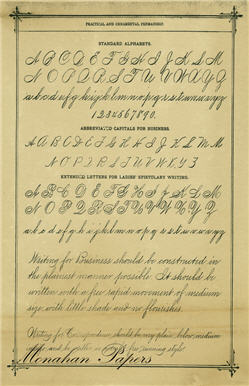 PRACTICAL AND ORNAMENTAL PENMANSHIP.
STANDARD ALPHABETS.
A B C D E F G H I J K L M
N O P Q R S T U V W X Y Z
a b c d e f g h i j k l m n o p q r s t u v w x y z
1 2 3 4 5 6 7 8 9 0.
ABBREVIATED CAPITALS FOR BUSINESS.
A B C D E F G H I J K L M
N O P Q R S T U V W X Y Z
EXTENDED LETTERS FOR LADIES' EPISTOLARY WRITING.
A B C D E F G H I J K L M
N O P Q R S T U V W X Y Z
a b c d e f g h i j k l m n o p q r s t u v w x y z
Writing for Business should be constructed in
the plainest manner possible. It should be
written with a free rapid movement of medium
size with little shade and no flourishes.
Writing for Correspondence should be very plain, below medium
size, and be written in running style
Monahan Papers